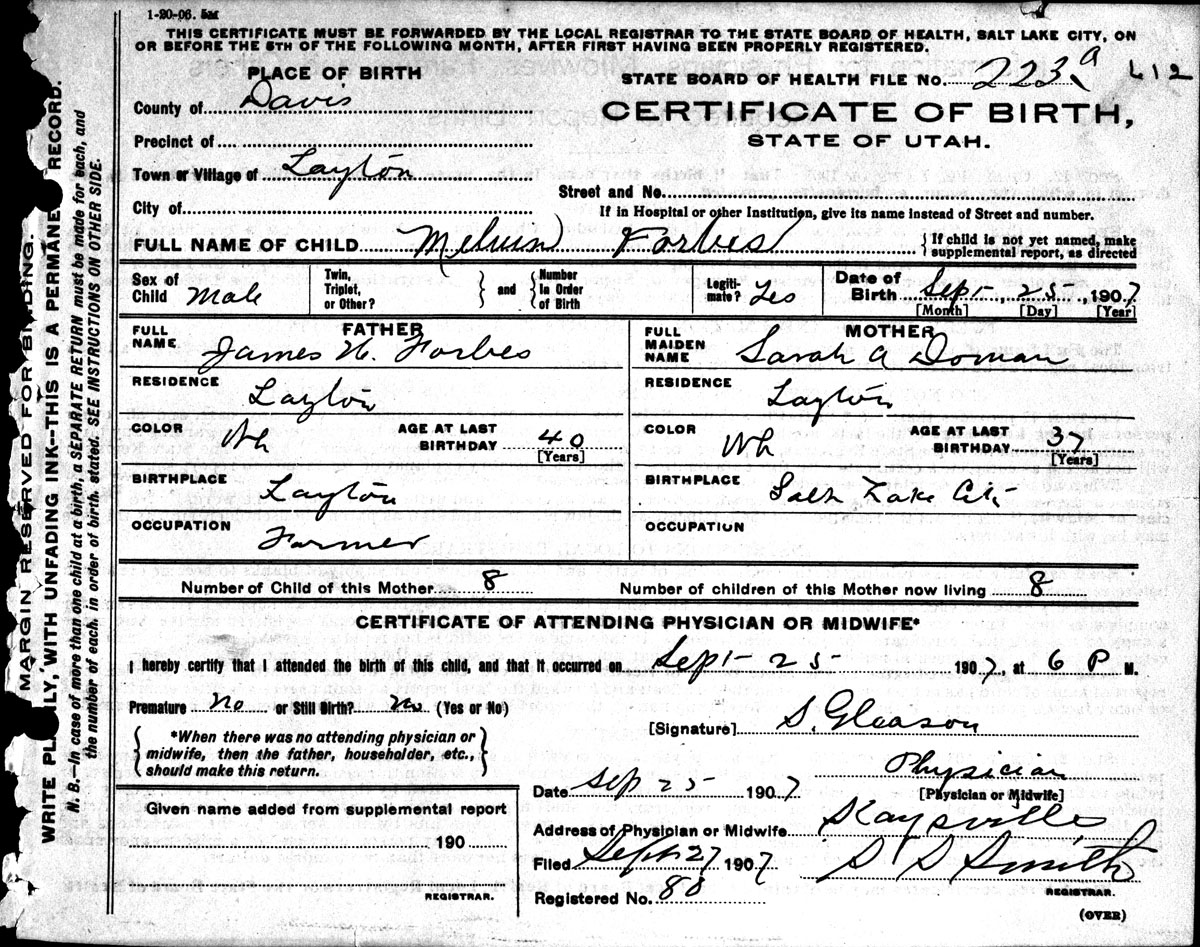 1-20-06. 5M
THIS CERTIFICATE MUST BE FORWARDED BY THE LOCAL REGISTRAR TO THE STATE BOARD OF HEALTH, SALT LAKE CITY, ON
OR BEFORE THE 5TH OF THE FOLLOWING MONTH, AFTER FIRST HAVING BEEN PROPERLY REGISTERED.
PLACE OF BIRTH
STATE BOARD OF HEALTH FILE No. 223 a 412
County of Davis
CERTIFICATE OF BIRTH,
STATE OF UTAH.
Precinct of
Town or Village of Layton
Street and No.
City of
If in Hospital or other Institution, give its name instead of Street and number.
FULL NAME OF CHILD Melvin Forbes
If child is not yet named, make
supplemental report, as directed
Sex of Child Male
Twin, Triplet, or Other? and Number in Order of Birth
Legitimate? Yes
Date of Birth Sept. 25, 1907
[Month] [Day] [Year]
FATHER
FULL NAME James H. Forbes
RESIDENCE Layton
COLOR Wh
AGE AT LAST BIRTHDAY 40
[Years]
BIRTHPLACE Layton
OCCUPATION Farmer
MOTHER
FULL MAIDEN NAME Sarah A Doman
RESIDENCE Layton
COLOR Wh
AGE AT LAST BIRTHDAY 37
[Years]
BIRTHPLACE Salt Lake City
OCCUPATION
Number of Child of this Mother 8
Number of children of this Mother now living 8
CERTIFICATE OF ATTENDING PHYSICIAN OR MIDWIFE*
I hereby certify that I attended the birth of this child, and that it occurred on Sept 25 1907, at 6 P M.
Premature No Still Birth? No (Yes or No)
[Signature] S. Gleason
*When there was no attending physician or
midwife, then the father, householder, etc.,
should make this return.
Physician
[Physician or Midwife]
Date Sep 25 1907
Given name added from supplemental report
190
REGISTRAR.
Address of Physician or Midwife Kaysville
Filed Sept 27 1907
S D Smith
REGISTRAR.
Registered No. 80
(OVER)
MARGIN RESERVED FOR BINDING.
WRITE PL LY, WITH UNFADING INK--THIS IS A PERMANE RECORD.
N. B.--In case of more than one child at a birth, a SEPARATE RETURN must be made for each, and
the number of each, in order of birth, stated. SEE INSTRUCTIONS ON OTHER SIDE.